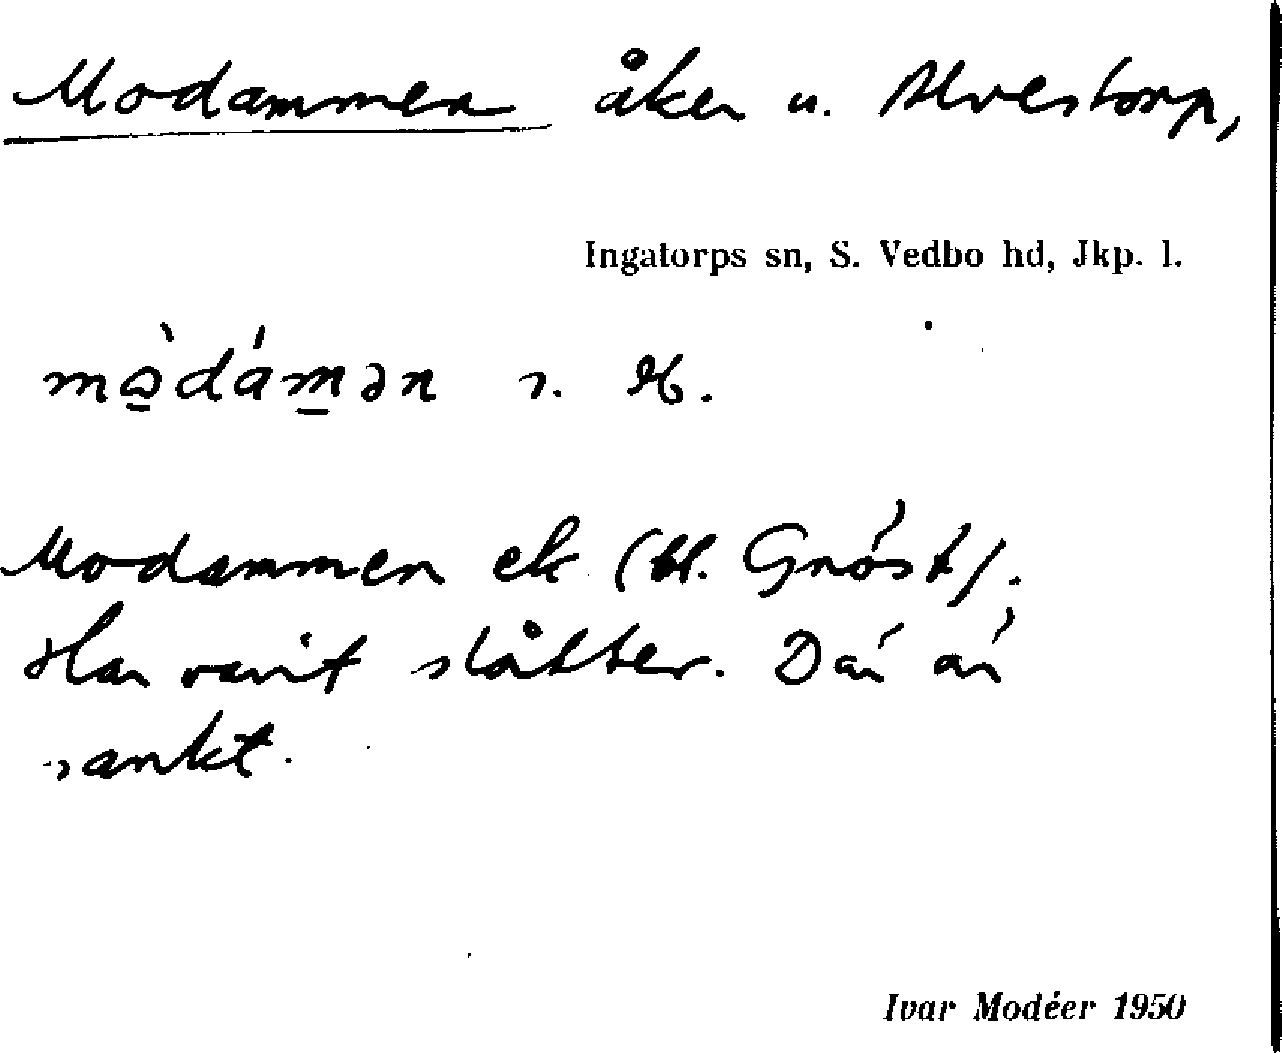 Modammen åker u. Alvestorp,
Ingatorps sn, S. Vedbo hd, Jkp. l.
mὼdámən s. H.
Modammen ek (bl. Gnöst).
Har varit slåtter. Där är
sankt.
Ivar Modéer 1950